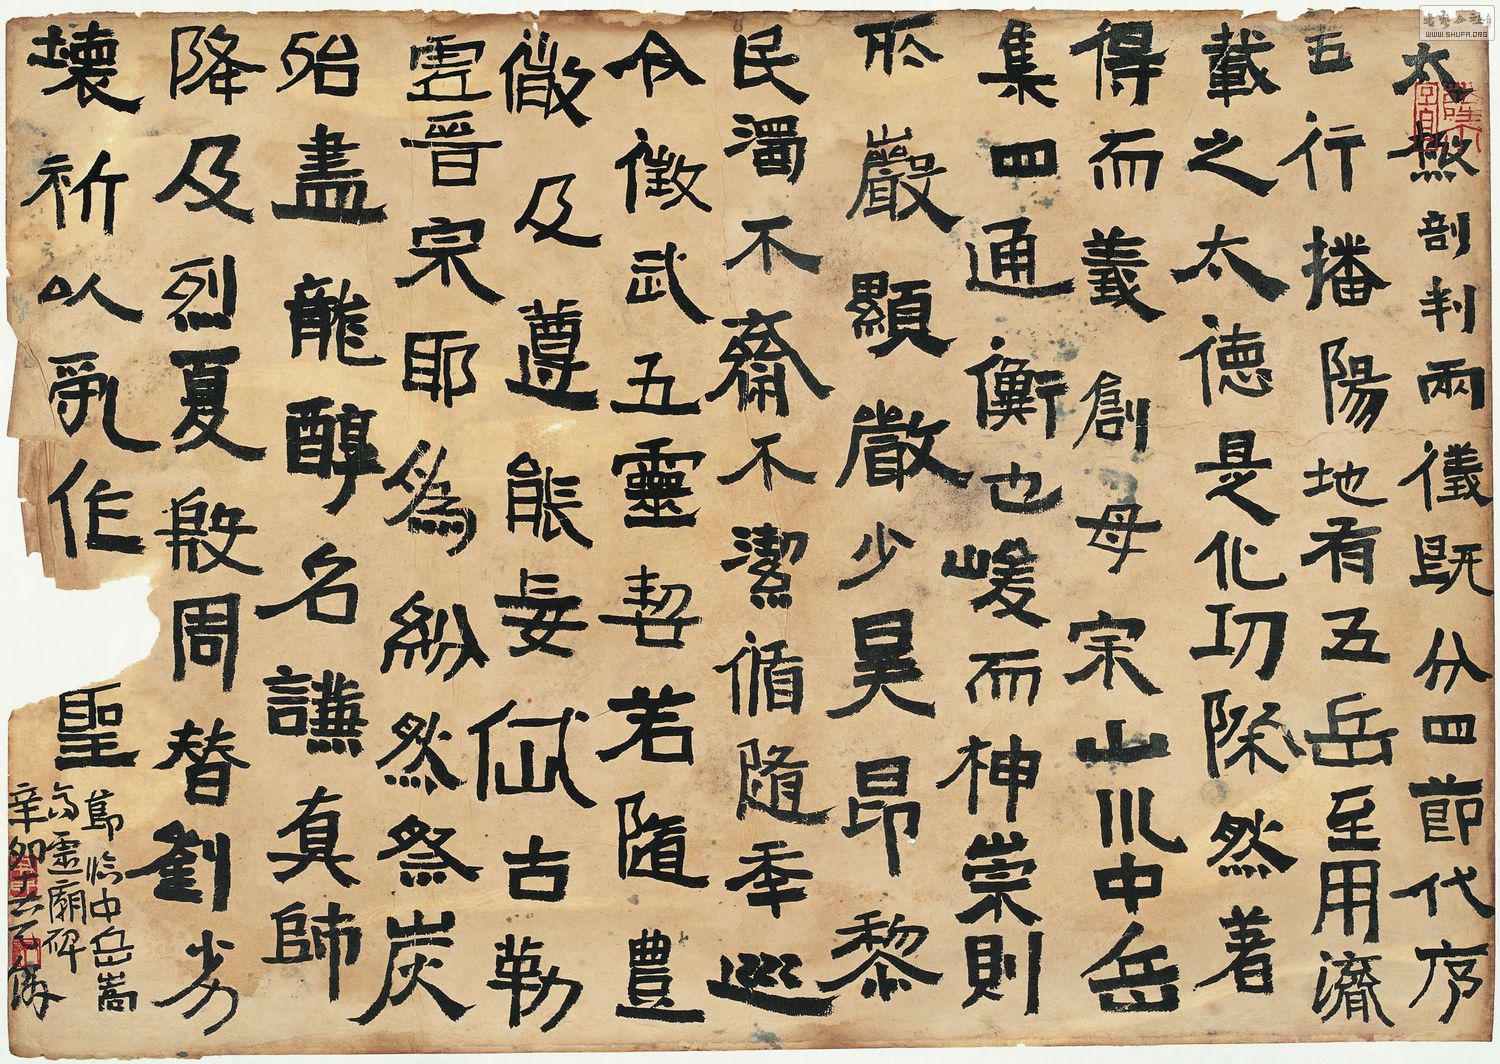 太極剖判兩儀既分四節代序
五行播陽地有五岳至用濟
載之太德是化功隙然著
得而義創母宗山川中岳
集四通衡也峻而神崇則
所巖顯嚴少昊昂黎
民濁不齋不潔循隨季巡
令徵武五靈契若隨豊
徵及遵能妄古勒
靈晉宗耶為紛然祭炭
殆盡龍醇名讌真師
降及烈夏殷周替劉劣
壞祈以乳作聖
節臨中岳嵩
高靈廟碑
辛卯十六
www.SHUFA.ORG